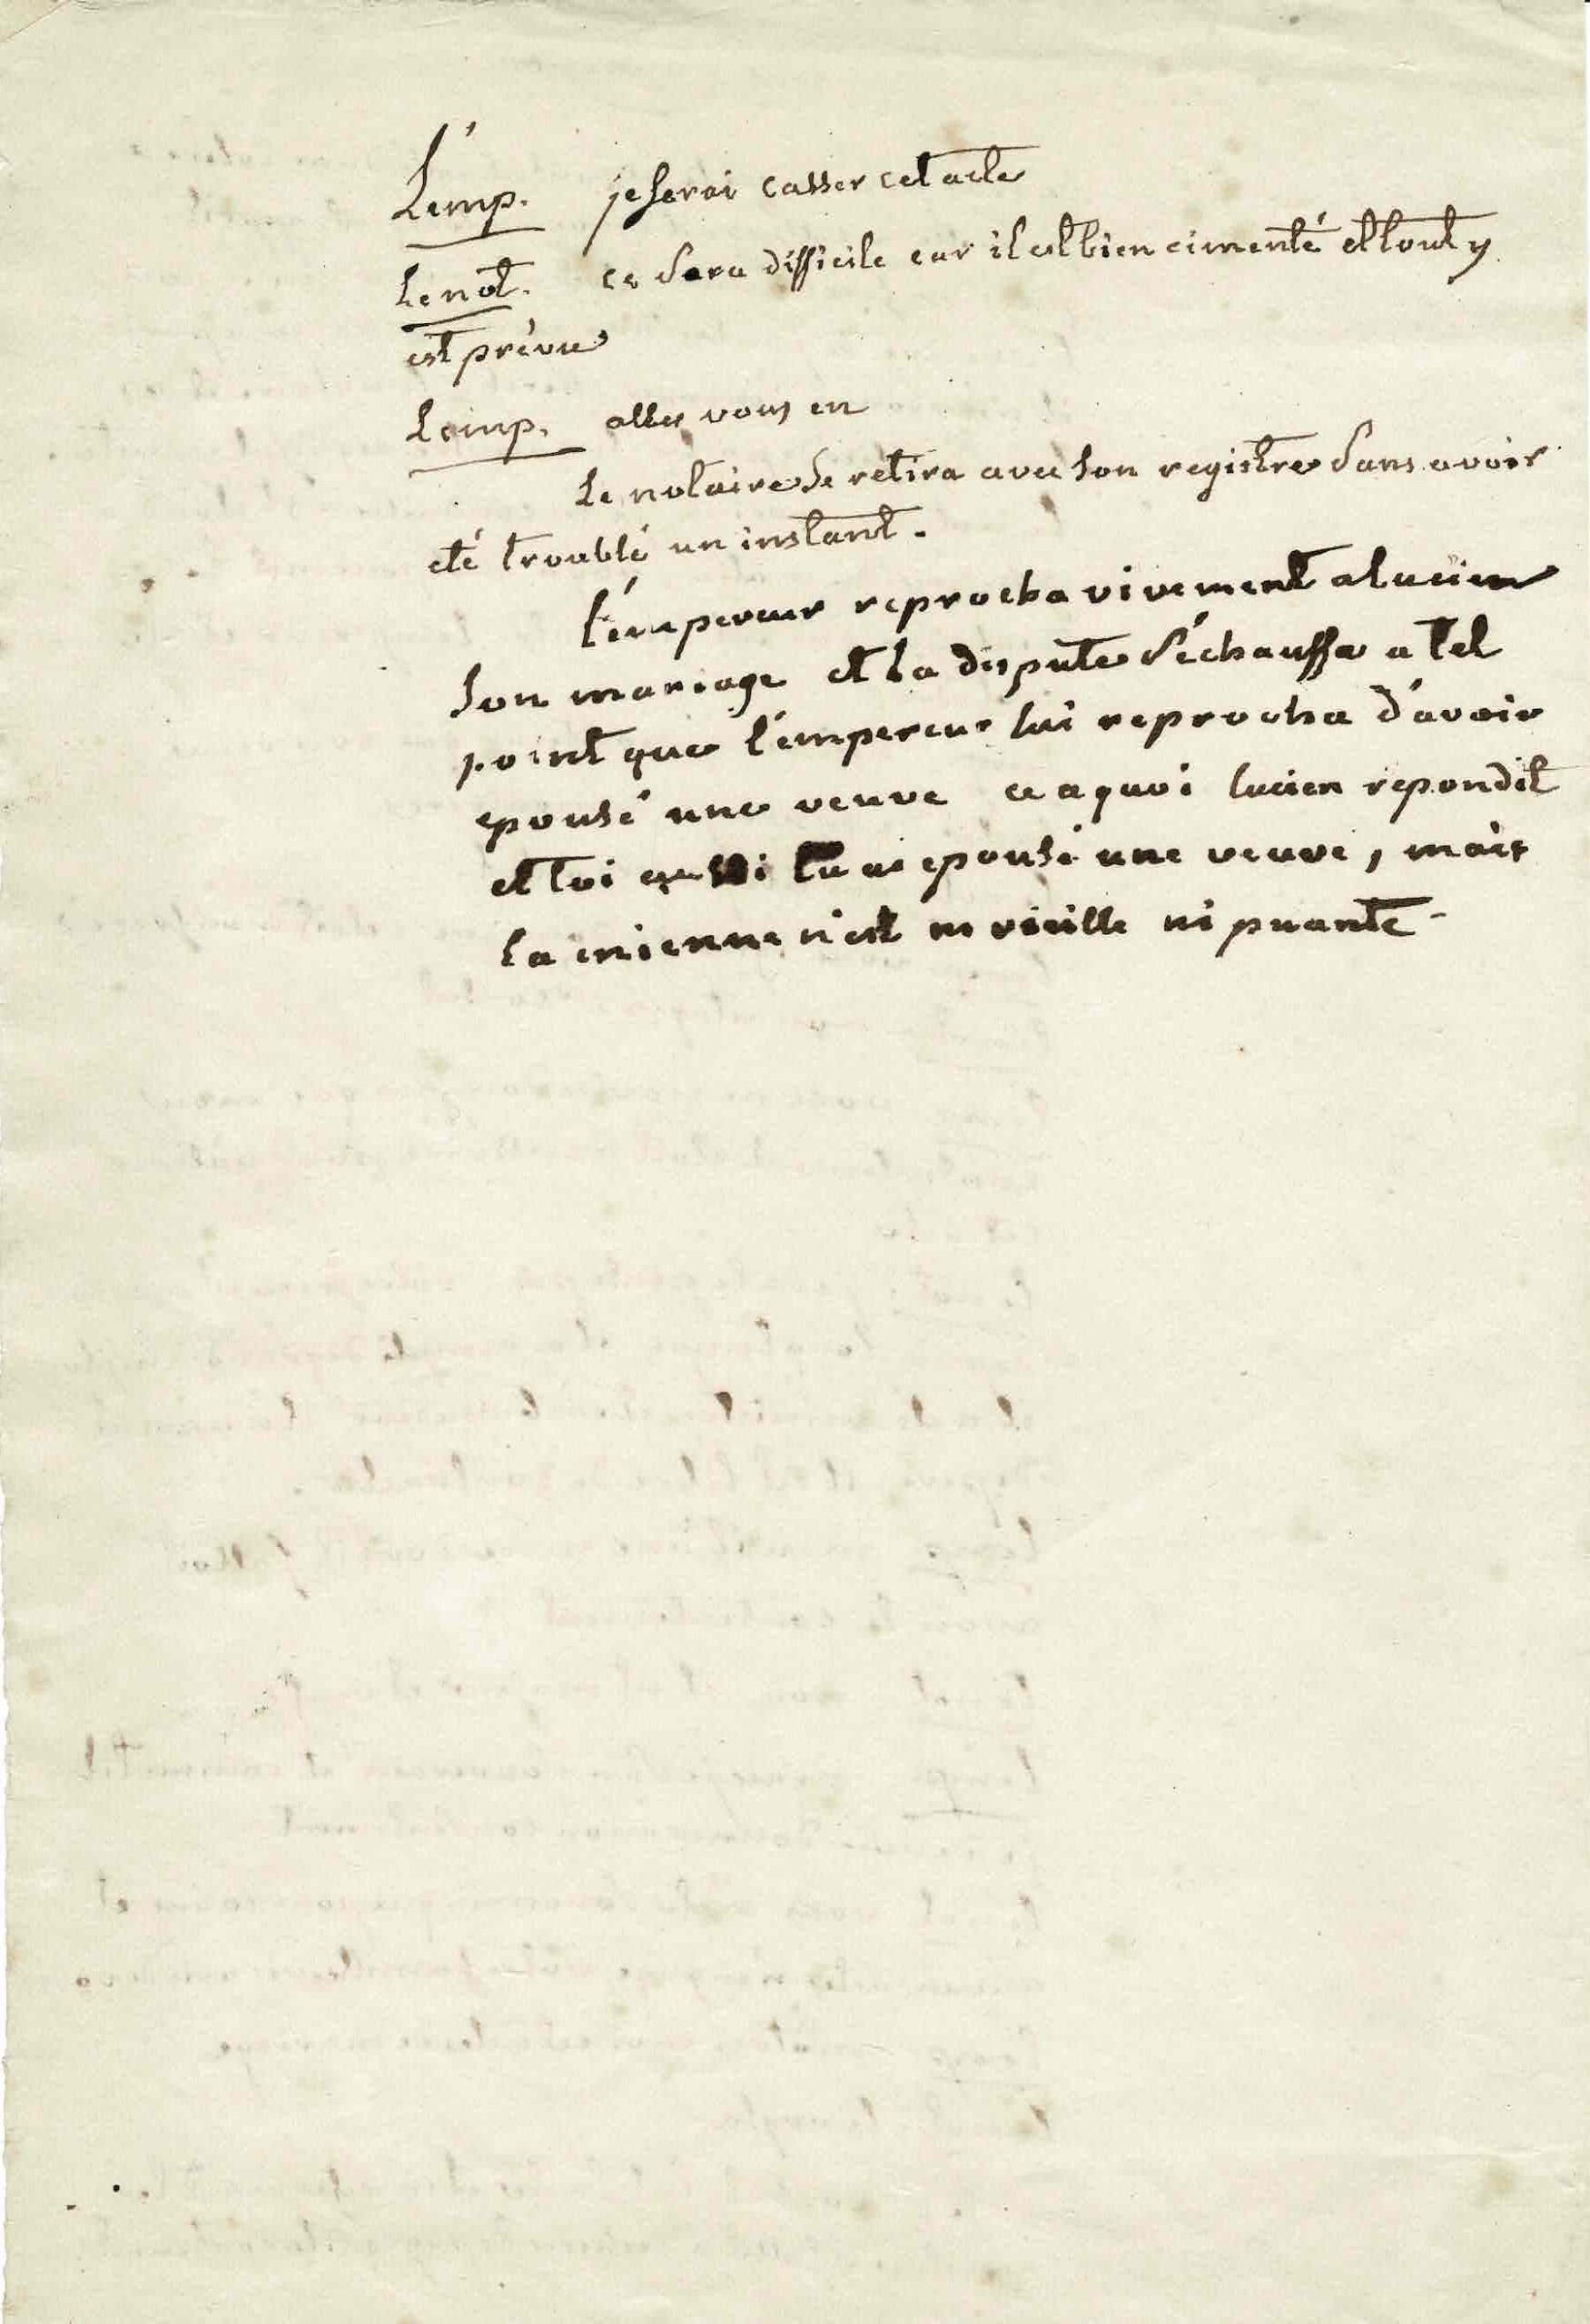 L'emp. je ferai casser cet acte
Le not. ce sera difficile car il est bien cimenté et tout y
est prévu
L'emp. allez vous en
Le notaire se retira avec son registre sans avoir
eté troublé un instant.
l'empereur reprocha vivement a lucien
son mariage et la dispute s'échauffa a tel
point que l'empereur lui reprocha d'avoir
epousé une veuve ce a quoi lucien repondit
et toi aussi tu as epousé une veuve, mais
la mienne n'est ni vieille ni puante -